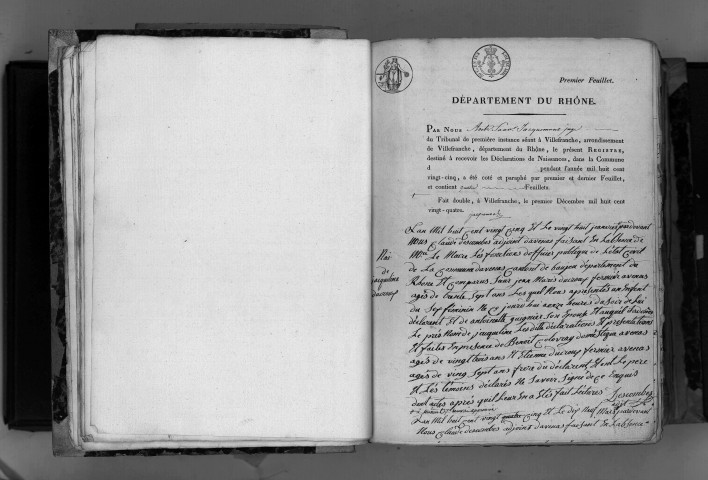 Premier Feuillet.
DÉPARTEMENT DU RHÔNE.
PAR NOUS Jacquemont juge
du Tribunal de première instance séant à Villefranche, arrondissement
de Villefranche, département du Rhône, le présent REGISTRE,
destiné à recevoir les Déclarations de Naissances, dans la Commune
d pendant l'année mil huit cent
vingt-cinq, a été coté et paraphé par premier et dernier Feuillet,
et contient Feuillets.
Fait double, à Villefranche, le premier Décembre mil huit cent
vingt-quatre.
Jacquemont
Nai
de
jacqueline
ducroup
L'an mil huit cent vingt cinq Et Le vingt huit janvier pardevant
Nous Claude descombes adjoint davenas faisant En Labsence de
Mr Le Maire Les fonctions d'officier publique de Letat Civil
de La Commune davenas Canton de beaujeu département du
Rhône Et Comparus jean Marie ducroup fermier avenas
agés de trente sept ans Lesquel Nous a présentés un Enfant
du Sex féminin Né Ce jourd'hui onze heures de Lui
déclarent Et de antoinette Son Epouse Et auquel
Le prénom de jacqueline Les dittes déclarations Et présentations
Et faites En présence de Benoit domestique avenas
agés de vingt trois ans Et Etienne ducroup fermier avenas
agés de vingt Sept ans frère du déclarent Et ont Le père
Et Les témoins déclarés Ne Savoir Signé de Ce Enquis
dont actes après quil Leur En a Etés fait Lectures Descombes
L'an Mil huit cent vingt cinq Et Le dix Neuf Mars pardevant
Nous Claude descombes adjoint davenas faisant En Labsence